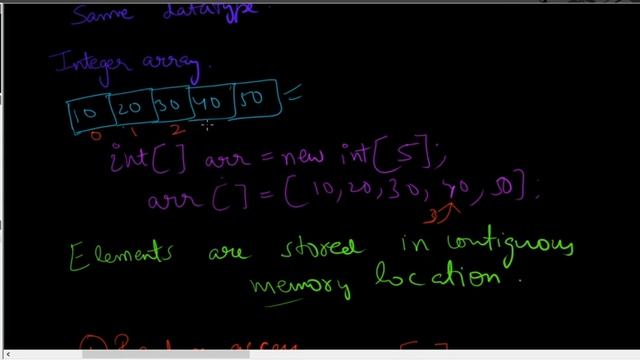 Same datatype.
Integer array.
10 20 30 40 50 =
0 1 2
int[] arr = new int[5];
arr[] = [10,20,30,40,50];
3
Elements are stored in contiguous
memory location.